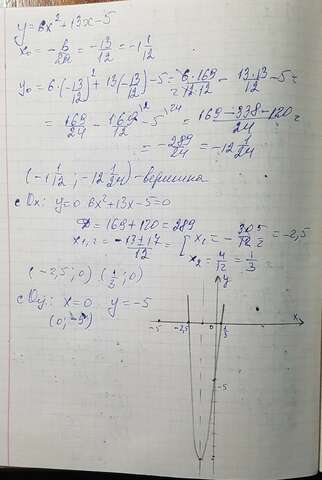 y=6x²+13x-5
x₀=-b/2a=-13/12=-1 1/12
y₀=6·(-13/12)²+13(-13/12)-5=6·169/12·12-13·13/12-5=
=169/24-169/12-5=169-338-120/24=
=-289/24=-12 1/24
(-1 1/12; -12 1/24)-вершина
с Ox: y=0 6x²+13x-5=0
D=169+120=289
x₁,₂=-13±17/12=[x₁=-30/12=-2,5
x₂=4/12=1/3
(-2,5;0) (1/3;0)
с Oy: x=0 y=-5
(0;-5)
y
-5 -2,5 0 1/3 x
-5